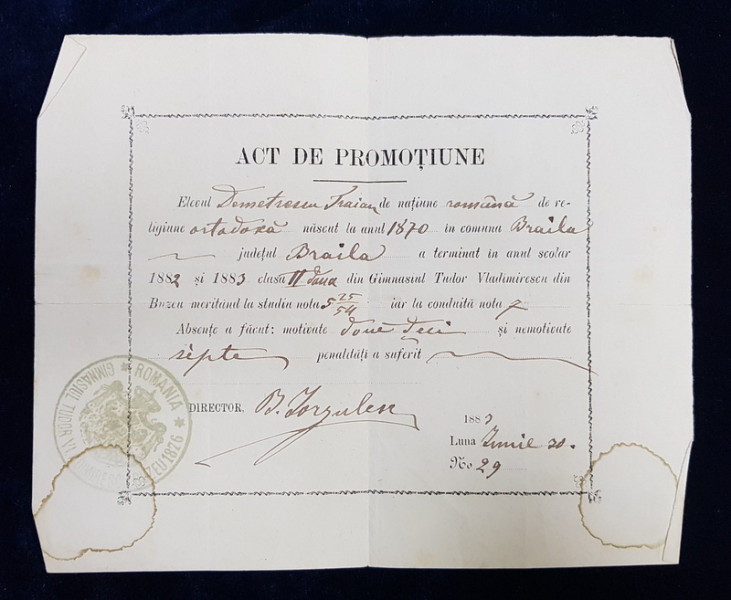 ACT DE PROMOȚIUNE
Elevul Demetrescu Traian de națiune română de re-
ligiune ortodoxă născut la anul 1870 în comuna Braila
județul Braila a terminat in anul scolar
1882 și 1883 clasa II doua din Gimnasiul Tudor Vladimirescu din
Buzeu meritând la studiu nota 5 25/54 iar la conduită nota 7
Absențe a făcut: motivate doue deci și nemotivate
septe penalități a suferit
DIRECTOR, B. Iorgulescu
1883
Luna Iunie 30.
No 29
ROMANIA
GIMNASIUL TUDOR VLADIMIRESCU BUZEU 1876